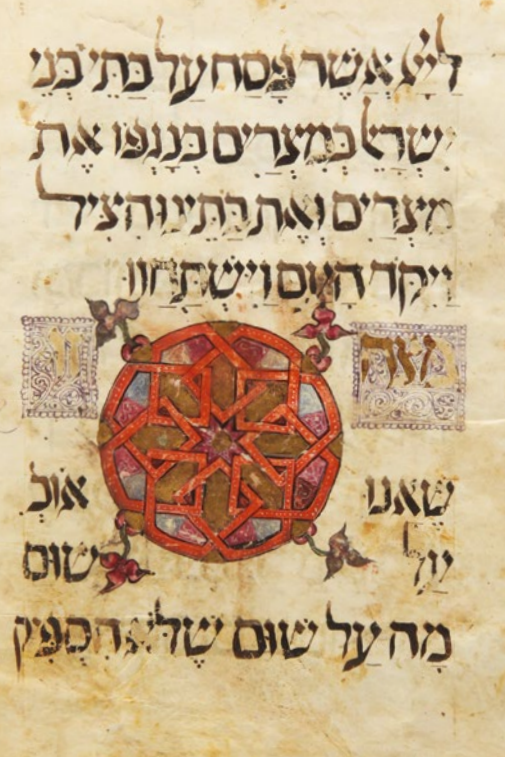 לייי אשר פסח על בתי בני
ישראל במצרים בנגפו את
מצרים ואת בתינו הציל
ויקד העם וישתחוו
מצה זו
שאנו אוכ
על שום
מה על שום שלא הספיק